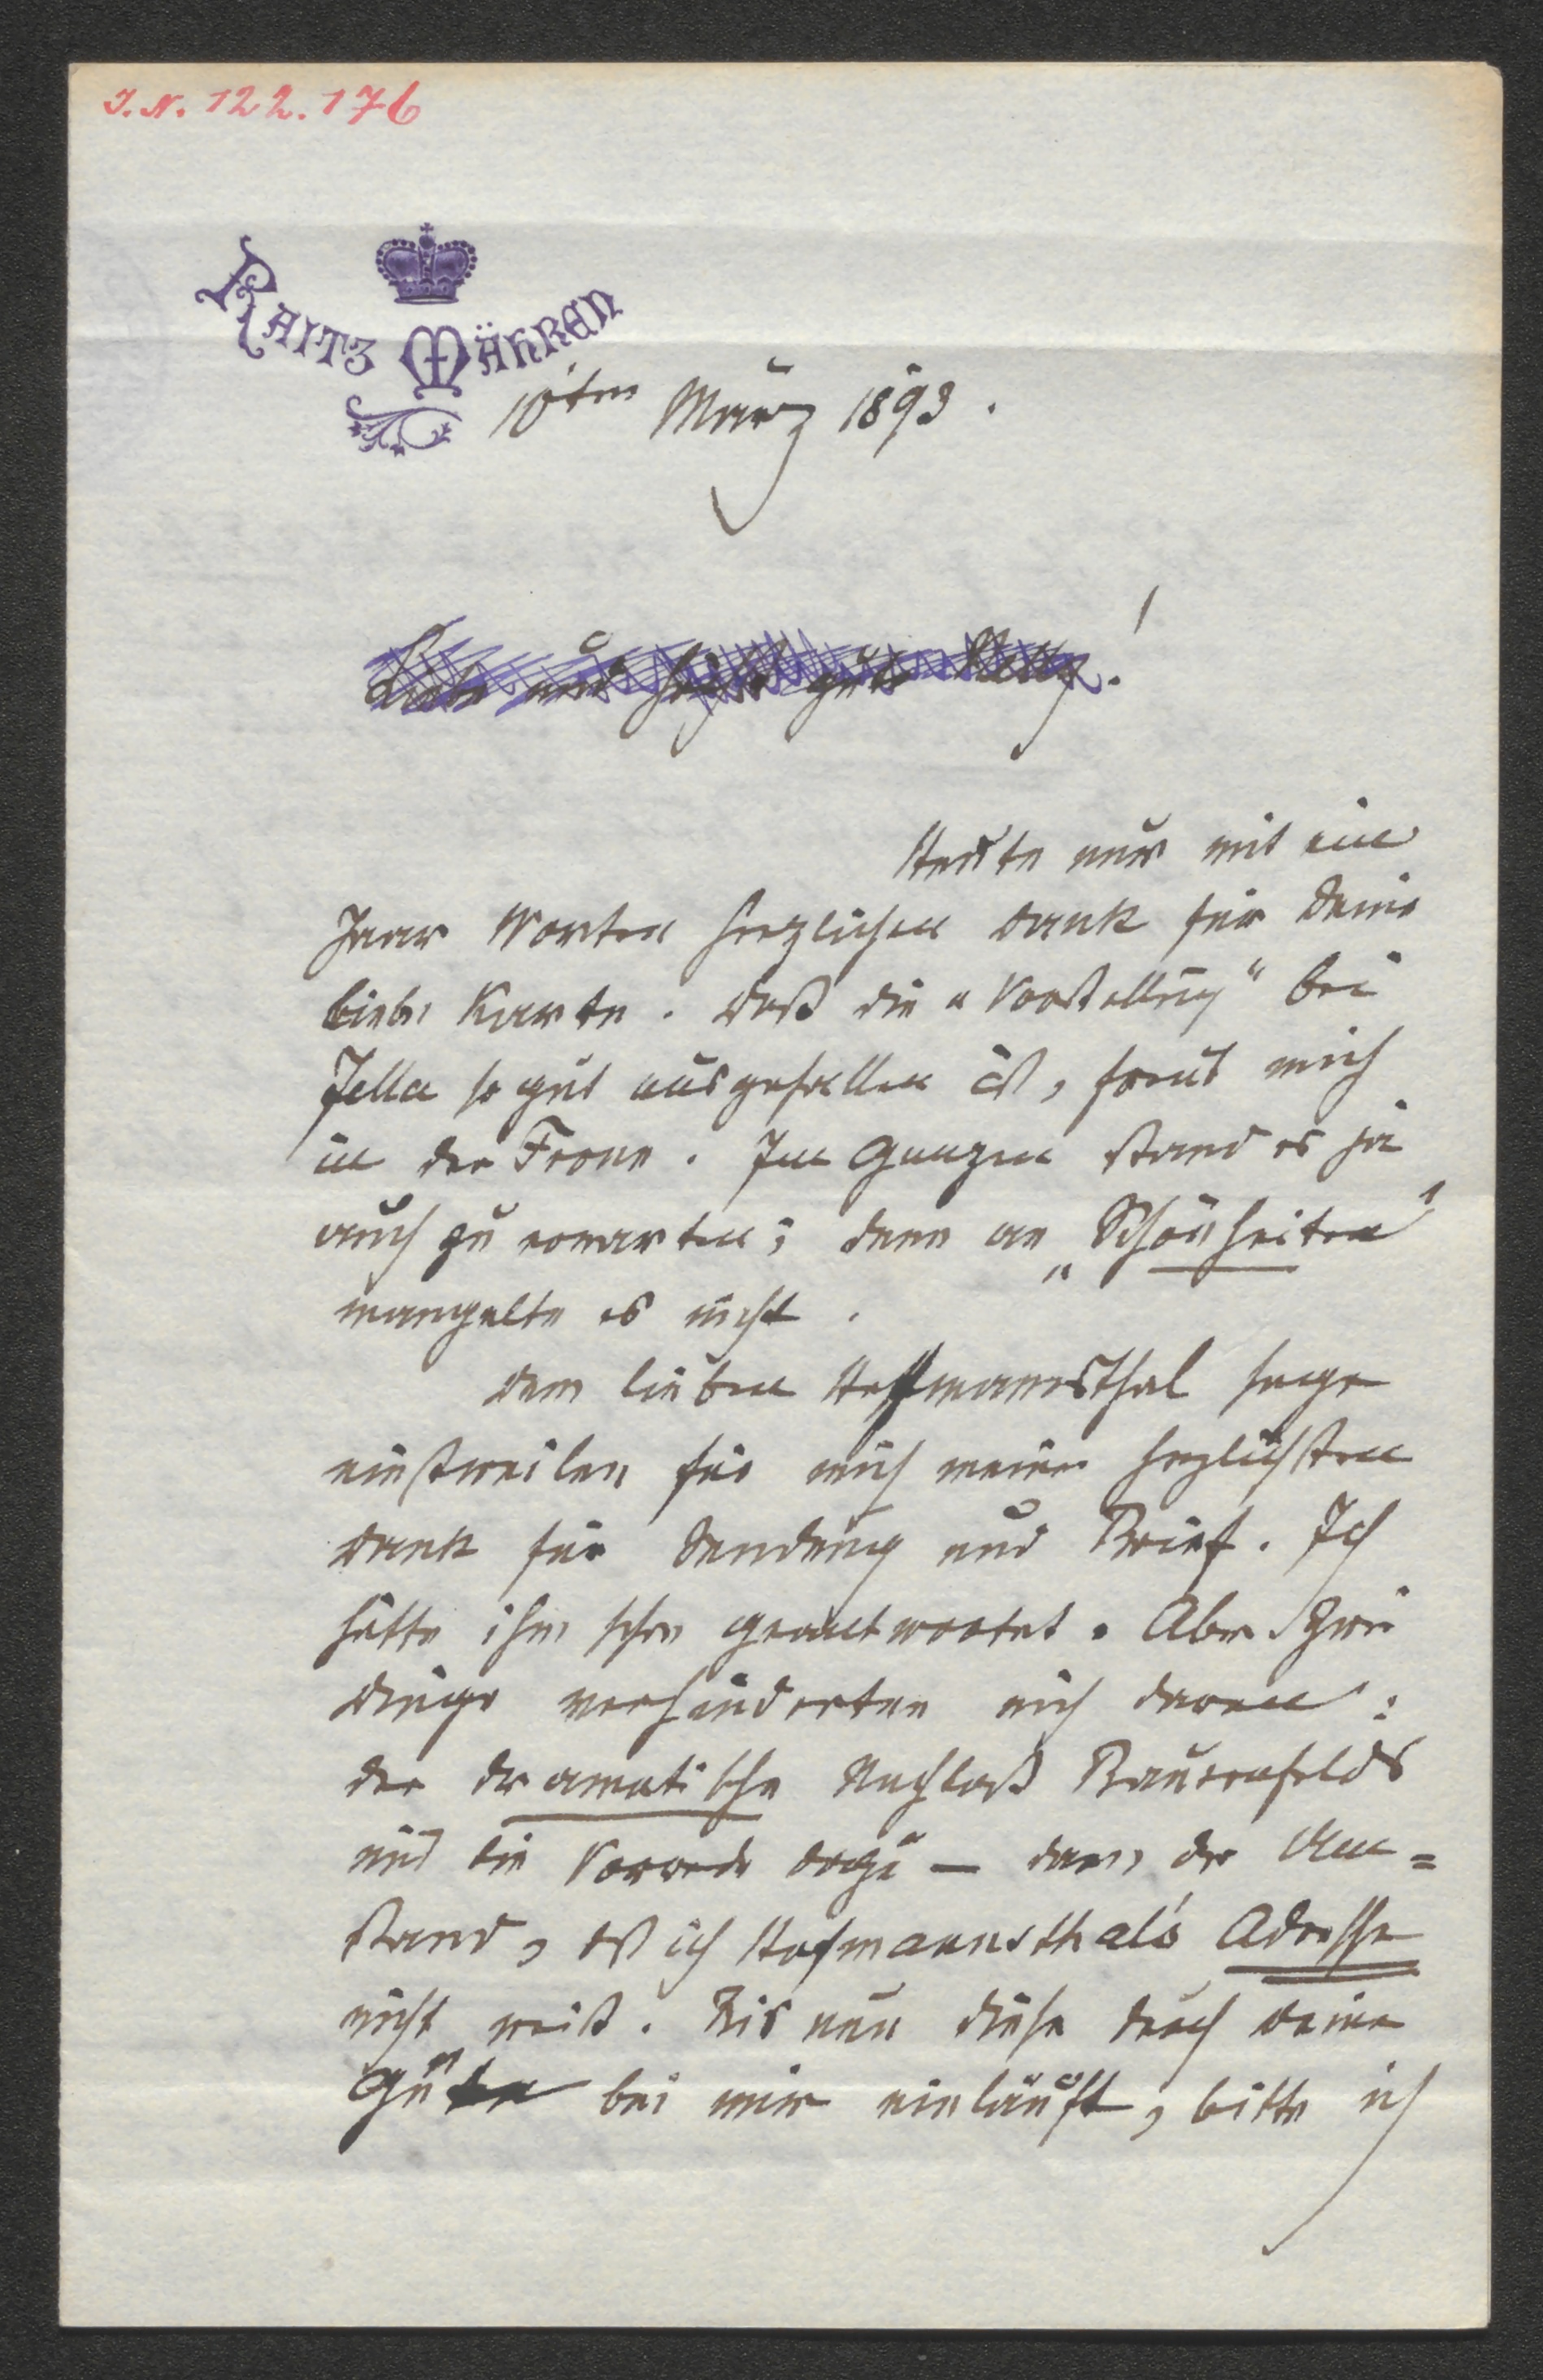 I. N. 122.176
RAITZ MÄHREN
10ten März 1893.
Liebe und sehr gute Nelly!
Heute nur mit ein
Paar Worten herzlichen Dank für Deine
liebe Karte. Daß die „Vorstellung“ bei
Jella so gut ausgefallen ist, freut mich
in der Ferne. Im Ganzen stand es ja
auch zu erwarten; denn an „Schönheiten“
mangelte es nicht.
Dem lieben Hoffmannsthal sage
einstweilen für mich meinen herzlichsten
Dank für Sendung und Brief. Ich
hätte ihm schon geantwortet. Aber zwei
Dinge verhinderten mich daran:
der dramatische Nachlaß Bauernfelds
und die Vorrede dazu — dann der Um=
stand, daß ich Hofmannsthal's Adresse
nicht weiß. Bis nun diese durch Deine
Güte bei mir einläuft, bitte ich